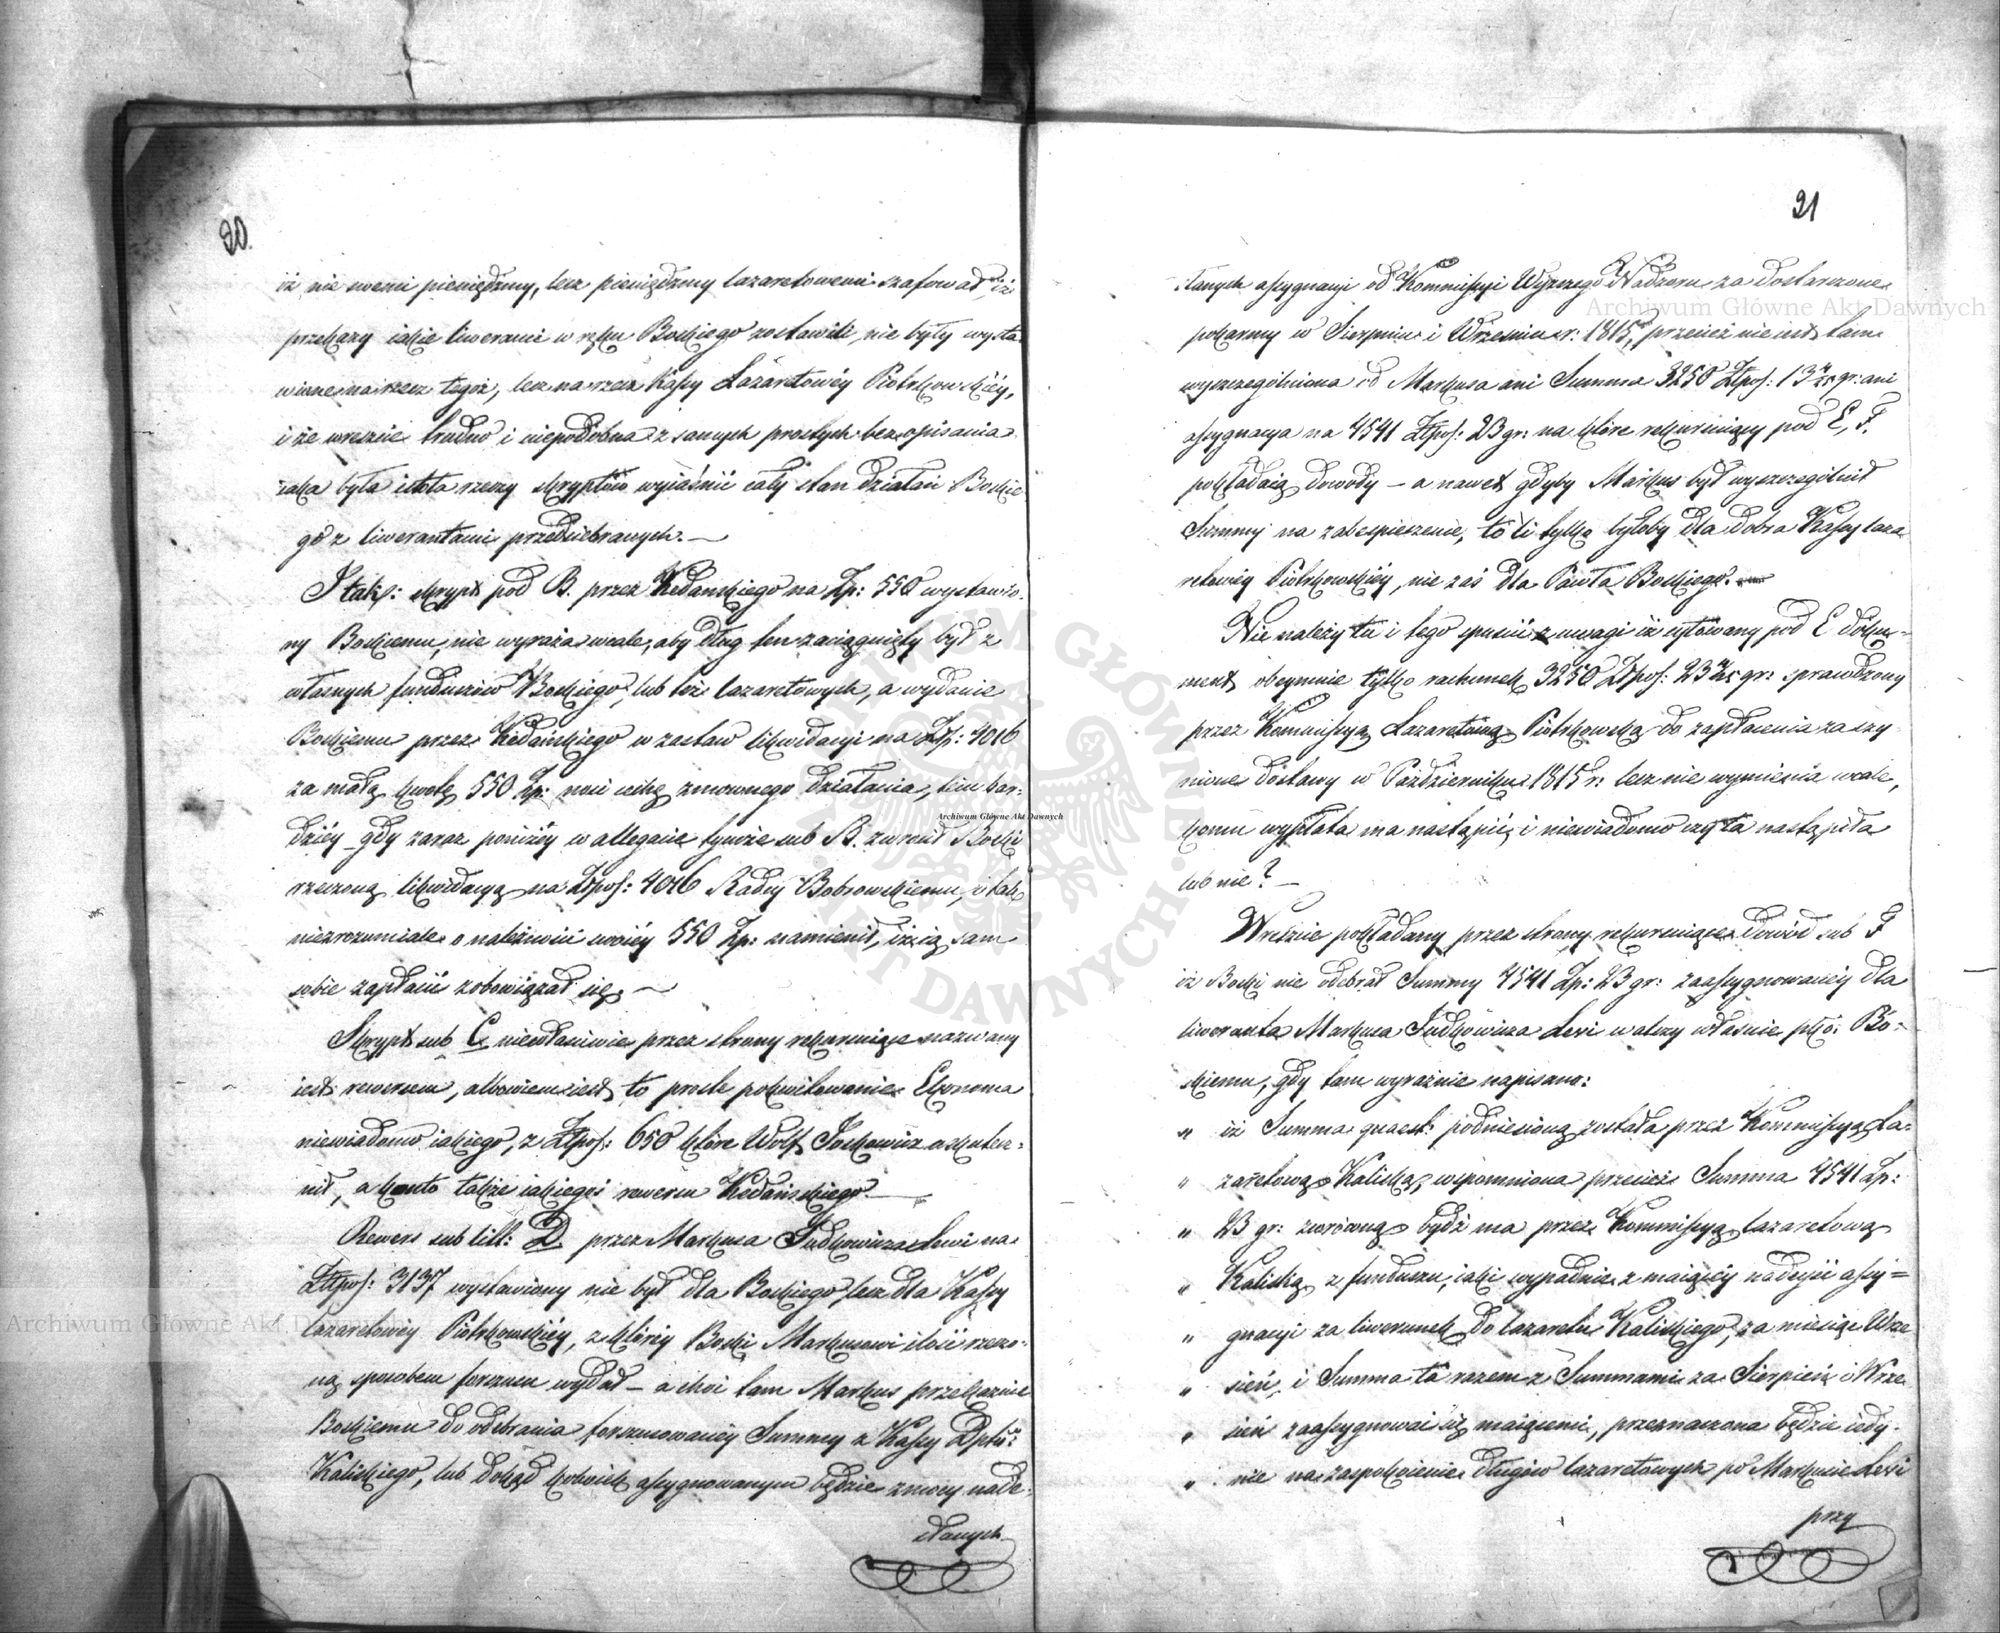 20.
iż nie swemi pieniędzmy, lecz pieniędzmy lazaretowemi szafował, iż
przekazy iakie liweranci w ręku Boskiego zostawili, nie były wysta
wione na rzecz tegoż, lecz na rzecz Kassy Lazaretowéy Piotrkowskiéy,
i że wreszcie trudno i niepodobna z samych prostych bez opisania
iaka była istota rzeczy skryptów wyiaśnić cały stan działań Boskie
go z liwerantami przedsiebranych. —
I tak: skrypt pod B. przez Kedańskiego na Zp: 550 wystawio-
ny Boskiemu, nie wyraża wcale, aby dług ten zaciągnięty był z
własnych funduszów Boskiego, lub też lazaretowych, a wydanie
Boskiemu przez Kedańskiego w zastaw likwidacyi na Zp: 4016
za małą kwotę 550 Zp: nosi cechę zmownego działania, tém bar-
dziéy gdy zaraz poniżéy w allegacie tymże sub B. zwrócił Boski
rzeczoną likwidacyą na Ztpol: 4016 Radcy Bobrowskiemu, i tak
niezrozumiale o należności swoiéy 550 Zp: namienił, iż ią sam
sobie zapłacić zobowiązał się. —
Skrypt sub C. niewłaściwie przez strony rekursuiące nazwany
iest rewersem, albowiem iest to proste pokwitowanie Ekonoma
niewiadomo iakiego, z Ztpol: 650 które Wolf Joskowicz uskutecz-
nił, a konto także iakiegoś rewersu Kedańskiego. —
Rewers sub litt: D. przez Markusa Judkowicza Lewi na
Ztpol: 3137 wystawiony nie był dla Boskiego, lecz dla Kassy
lazaretowéy Piotrkowskiéy, z któréy Boski Markusowi ilość rzeczo-
ną sposobem forszusu wydał — a choć tam Markus przekazuie
Boskiemu do odebrania forszusowanéy Summy z Kassy Dptu:
Kaliskiego, lub dokąd kolwiek assygnowanym będzie z mocy nade-
słanych
21
słanych assygnacyi od Kommissyi Wyższego Nadzoru za dostarczone
pokarmy w Sierpniu i Wrześniu r: 1815, przecież nie iest tam
wyszczególniona od Markusa ani Summa 3250 Ztpol: 13 gr: ani
assygnacya na 4541 Ztpol: 23 gr: na które rekursuiący pod E, F.
pokładaią dowody — a nawet gdyby Markus był wyszczególnił
Summy na zabespieczenie, to li tylko byłoby dla dobra Kassy laza
retowéy Piotrkowskiéy, nie zaś dla Pawła Boskiego. —
Nie należy tu i tego spuścić z uwagi iż cytowany pod E doku-
ment obeymuie tylko rachunek 3250 Ztpol: 23 gr: sprawdzony
przez Kommissyą Lazaretową Piotrkowską do zapłacenia za czy
nione dostawy w Październiku 1815 r: lecz nie wymienia wcale,
komu wypłata ma nastąpić, i niewiadomo czy ta nastąpiła
lub nie? —
Wreszcie pokładany przez strony rekursuiące dowód sub F
iż Boski nie odebrał Summy 4541 Zp: 23 gr: zaassygnowanéy dla
liweranta Markusa Judkowicza Levi walczy właśnie przeciw Bo-
skiemu, gdy tam wyraźnie napisano:
„ iż Summa quaest: podniesioną została przez Kommissyą La-
„ zaretową Kaliską, wspomniona przecież Summa 4541 Zp:
„ 23 gr: zwróconą bydź ma przez Kommissyą lazaretową
„ Kaliską z funduszu, iaki wypadnie z maiącéy nadeyść assy=
„ gnacyi za liwerunek do lazaretu Kaliskiego, za miesiąc Wrze
„ sień, i Summa ta razem z Summami za Sierpień i Wrze
„ sień zaassygnować się maiącemi, przeznaczona będzie iedy-
„ nie na zaspokoienie długów lazaretowych po Markusie Levi
przy
Archiwum Główne Akt Dawnych
Archiwum Główne Akt Dawnych
Archiwum Główne Akt Dawnych
ARCHIWUM GŁÓWNE AKT DAWNYCH